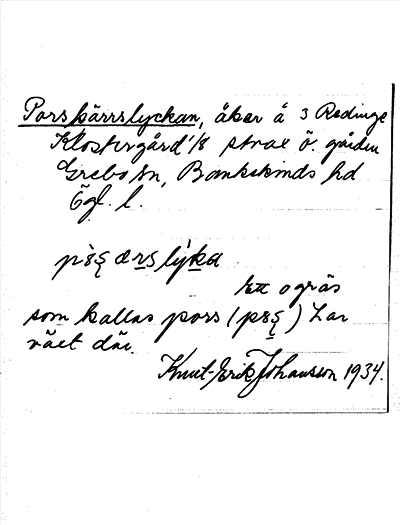 Porskärrslyckan, åker å 3 Redinge
Klostergård 1/8 strax ö. gården
Grebo sn, Bankekinds hd
Ögl. l.
lýka
Ett ogräs
som kallas pors ( ) har
växt där.
Knut-Erik Johansson 1934.